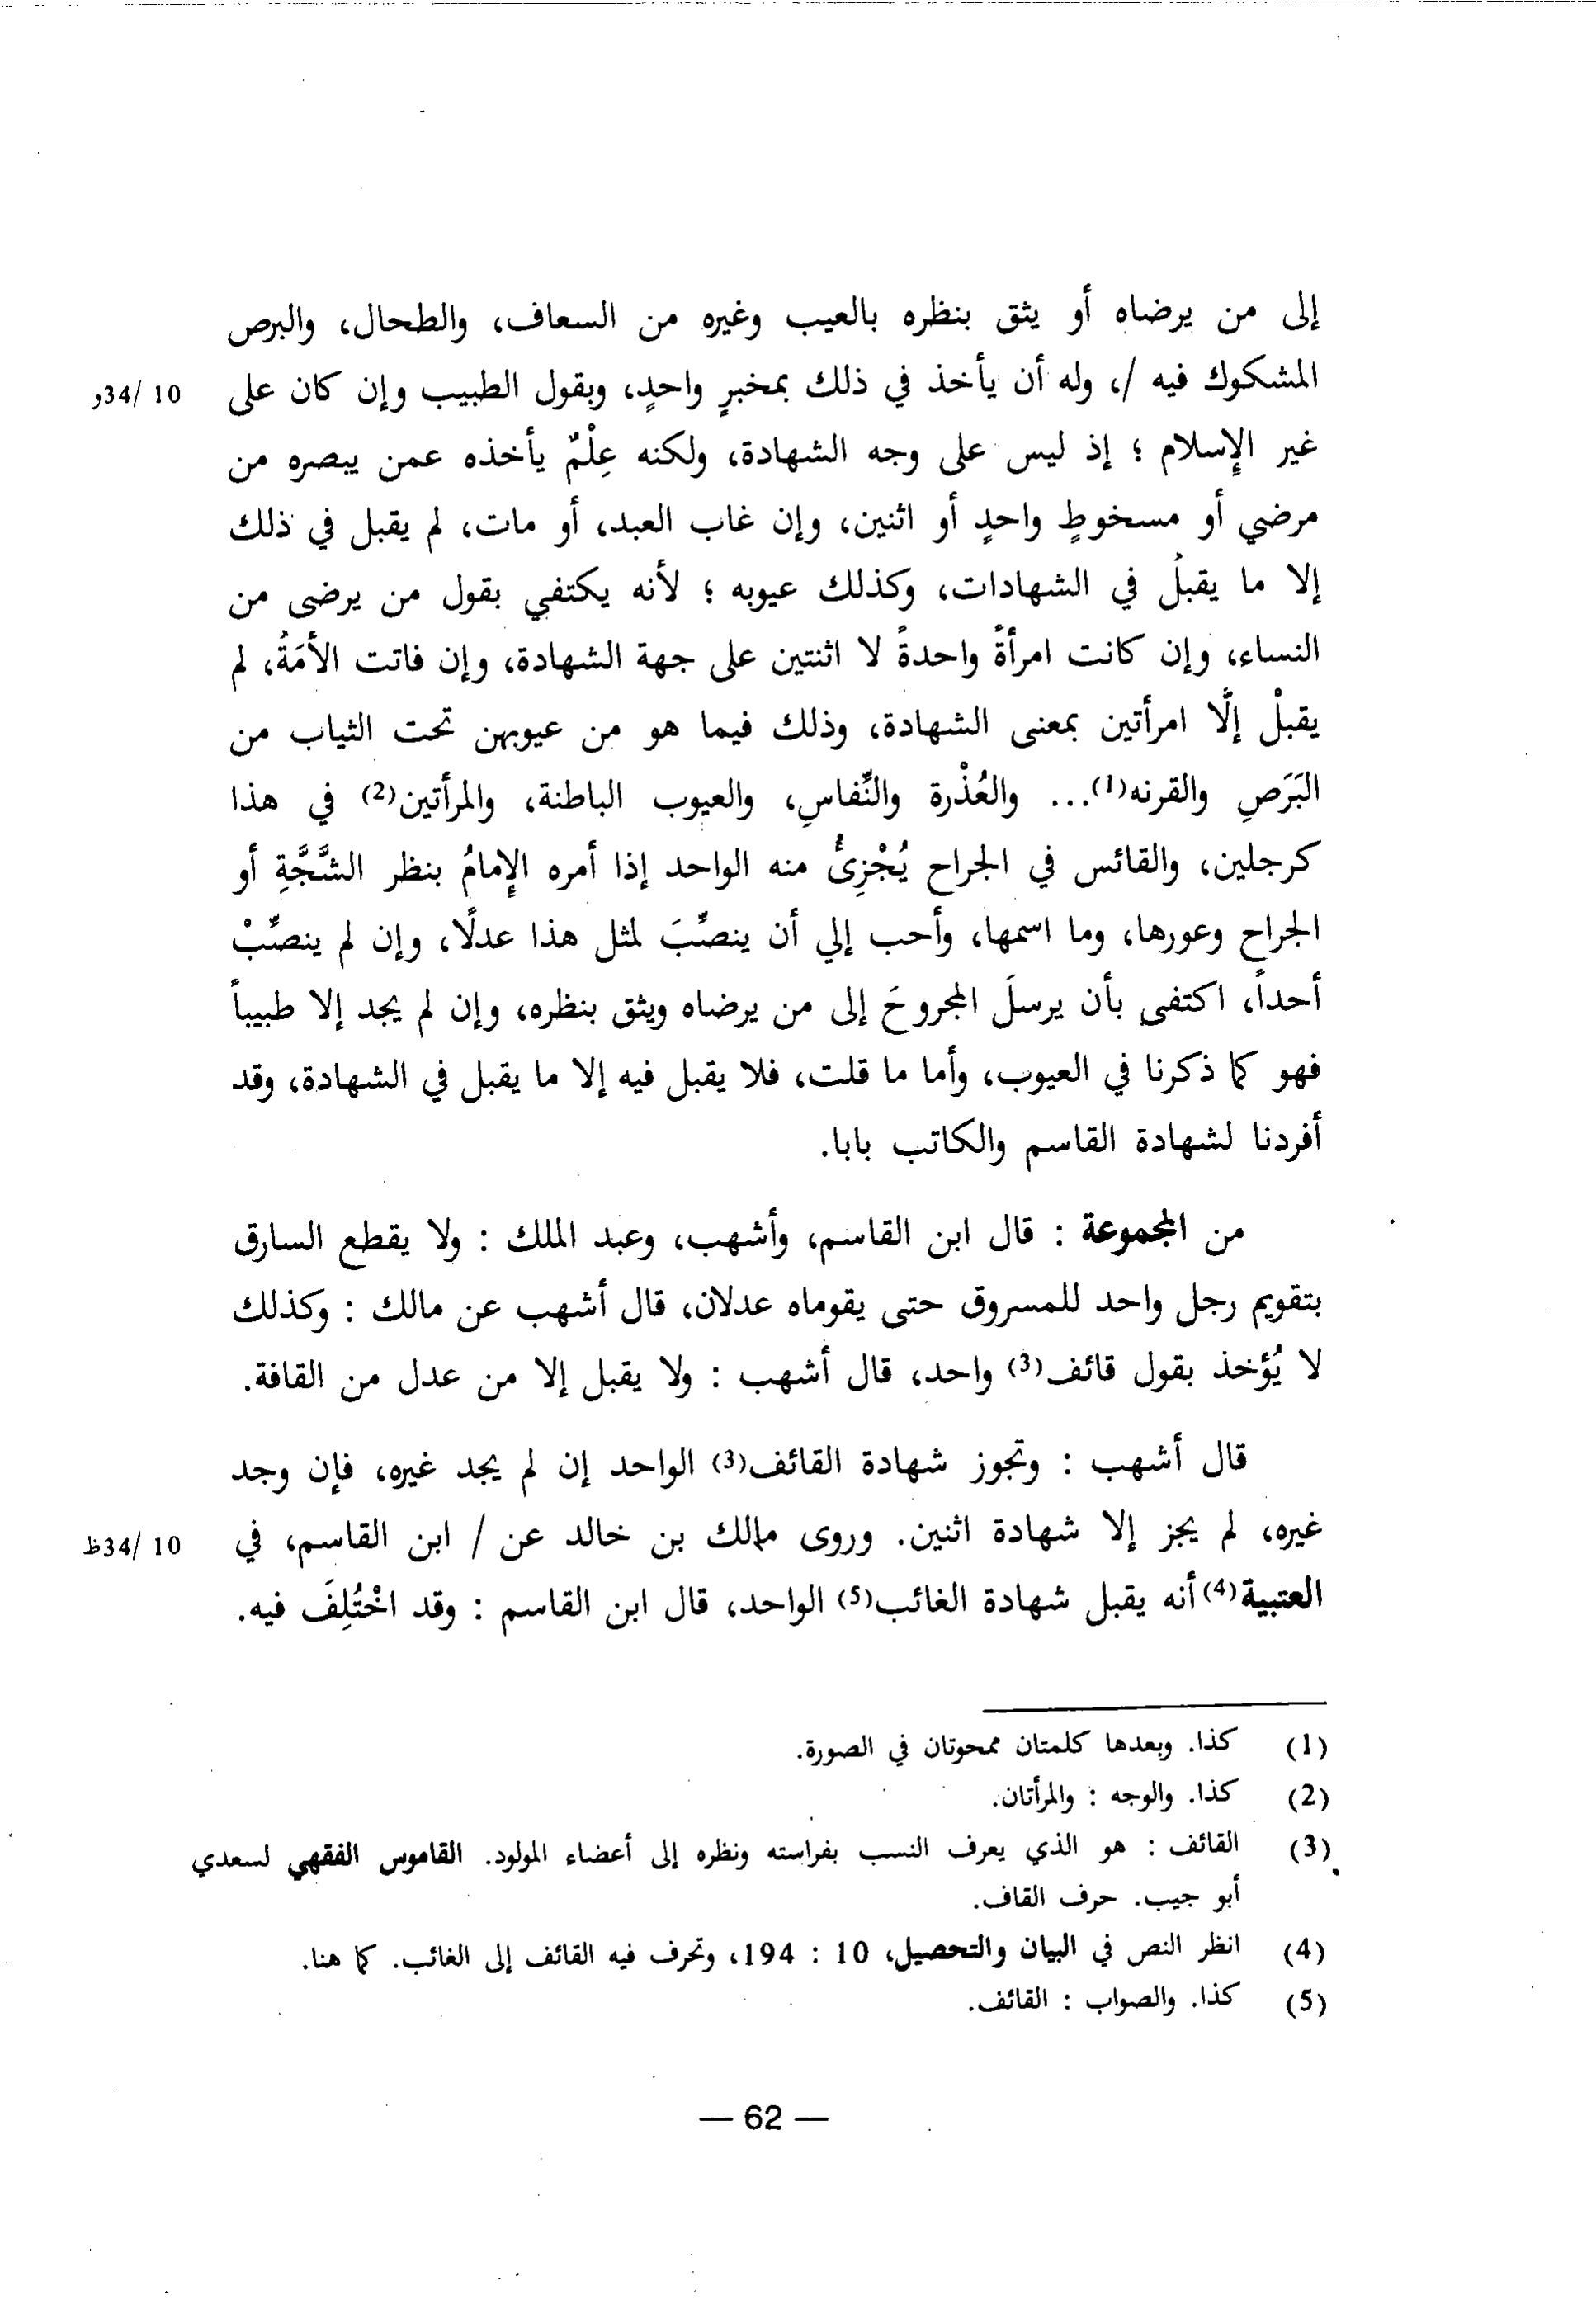 إلى من يرضاه أو يثق بنظره بالعيب وغيره من السعاف، والطحال، والبرص
المشكوك فيه /، وله أن يأخذ في ذلك بمخبرٍ واحدٍ، وبقول الطبيب وإن كان على
10 /34و
غير الإسلام ؛ إذ ليس على وجه الشهادة، ولكنه عِلْمٌ يأخذه عمن يبصره من
مرضي أو مسخوطٍ واحدٍ أو اثنين، وإن غاب العبد، أو مات، لم يقبل في ذلك
إلا ما يقبلُ في الشهادات، وكذلك عيوبه ؛ لأنه يكتفي بقول من يرضى من
النساء، وإن كانت امرأةً واحدةً لا اثنتين على جهة الشهادة، وإن فاتت الأمَةُ، لم
يقبلْ إلَّا امرأتين بمعنى الشهادة، وذلك فيما هو من عيوبهن تحت الثياب من
البَرَصِ والقرنه(1)... والعُذْرة والنِّفاسِ، والعيوب الباطنة، والمرأتين(2) في هذا
كرجلين، والقائس في الجراح يُجْزِئُ منه الواحد إذا أمره الإمامُ بنظر الشَّجَّةِ أو
الجراح وعورها، وما اسمها، وأحب إلي أن ينصِّبَ لمثل هذا عدلًا، وإن لم ينصِّبْ
أحداً، اكتفى بأن يرسلَ المجروحَ إلى من يرضاه ويثق بنظره، وإن لم يجد إلا طبيباً
فهو كما ذكرنا في العيوب، وأما ما قلت، فلا يقبل فيه إلا ما يقبل في الشهادة، وقد
أفردنا لشهادة القاسم والكاتب بابا.
من المجموعة : قال ابن القاسم، وأشهب، وعبد الملك : ولا يقطع السارق
بتقويم رجل واحد للمسروق حتى يقوماه عدلان، قال أشهب عن مالك : وكذلك
لا يُؤخذ بقول قائف(3) واحد، قال أشهب : ولا يقبل إلا من عدل من القافة.
قال أشهب : وتجوز شهادة القائف(3) الواحد إن لم يجد غيره، فإن وجد
غيره، لم يجز إلا شهادة اثنين. وروى مالك بن خالد عن / ابن القاسم، في
10 /34ظ
العتبية(4) أنه يقبل شهادة الغائب(5) الواحد، قال ابن القاسم : وقد اخْتُلِفَ فيه.
(1) كذا. وبعدها كلمتان ممحوتان في الصورة.
(2) كذا. والوجه : والمرأتان.
(3) القائف : هو الذي يعرف النسب بفراسته ونظره إلى أعضاء المولود. القاموس الفقهي لسعدي
أبو جيب. حرف القاف.
(4) انظر النص في البيان والتحصيل، 10 : 194، وتحرف فيه القائف إلى الغائب. كما هنا.
(5) كذا. والصواب : القائف.
— 62 —